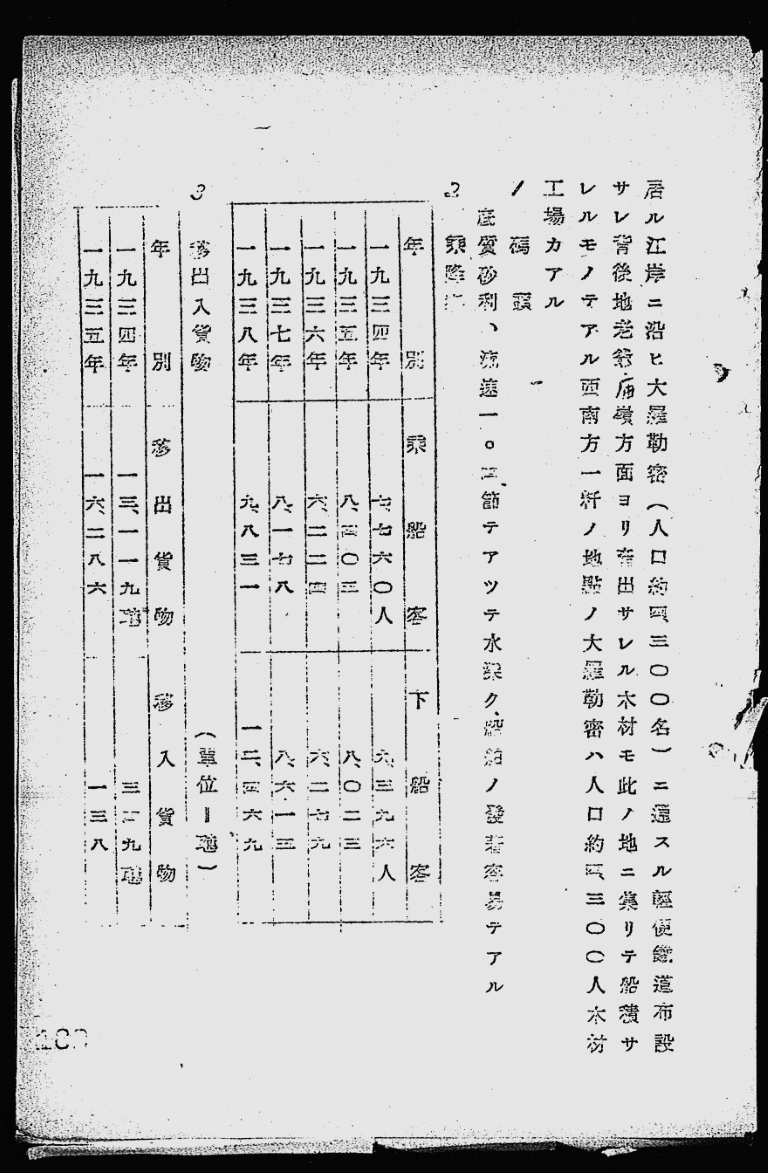 居ル江岸ニ沿ヒ大羅勒密(人口約四三〇〇名)ニ通スル輕便鐵道布設
サレ背後地老爺廟嶺方面ヨリ産出サレル木材モ此ノ地ニ集リテ船積サ
レルモノテアル西南方一粁ノ地點ノ大羅勒密ハ人口約四三〇〇人木材
工場カアル
1 碼頭
底質砂利、流速一〇節テアツテ水深ク、船舶ノ發着容易テアル
2 乘降
年別 乘船客 下船客
一九三四年 七、七六〇人 六、三九六人
一九三五年 八、四〇三 八、〇二三
一九三六年 六、二二四 六、二七九
一九三七年 八、一七八 八、六一三
一九三八年 九、八三一 一二、四六九
3 移出入貨物 (單位=瓲)
年別 移出貨物 移入貨物
一九三四年 一三、一一九瓲 三 九瓲
一九三五年 一六、二八六 一三八